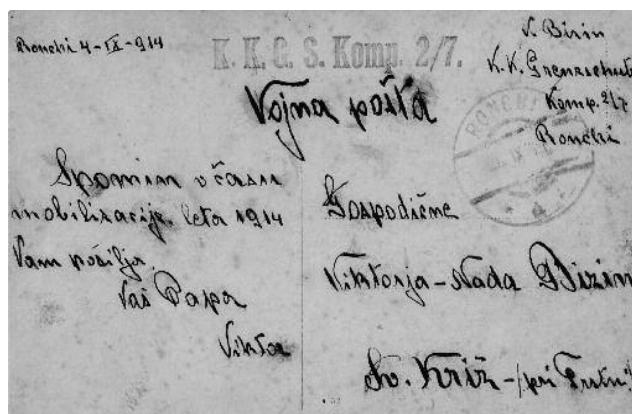 Ronchi 4-IX-914
K. K. G. S. Komp. 2/7.
V. Bizin
K.K. Grenzschutz
Komp. 2/7
Ronchi
Vojna pošta
RONCHI
Spomin v času
mobilizacije leta 1914
Vam pošilja
Vaš Papa
Viktor
Gospodične
Viktorja-Nada Bizin
Sv. Križ-(pri